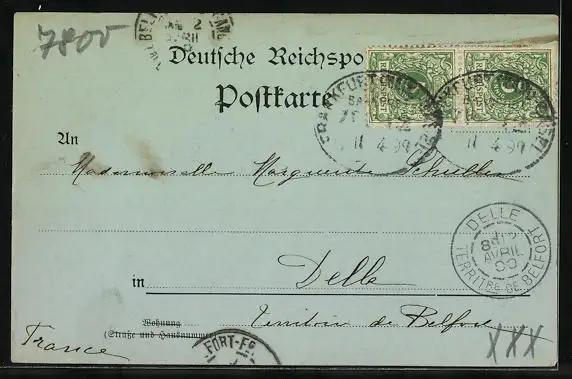 7800
Deutsche Reichspo
Postkarte
FRANKFURT
4.99
4.99
An
Mademoiselle Marguerite Schuller
DELLE
AVRIL
TERRITRE DE BELFORT
in Delle
Territoire de Belfort
Wohnung
(Straße und Hausnummer)
France
FORT-
XXX